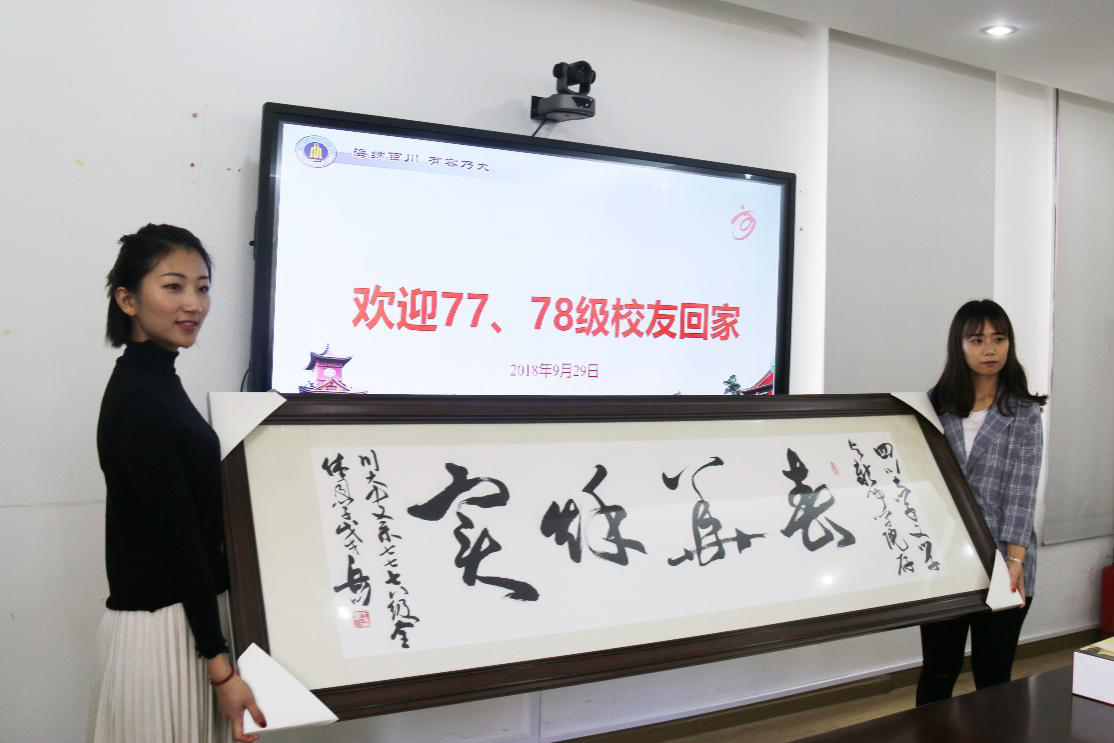 海纳百川 有容乃大
欢迎77、78级校友回家
2018年9月29日
四川大学文学
与新闻学院存
春華秋实
川大中文系七七七八级全
体同学戊戌